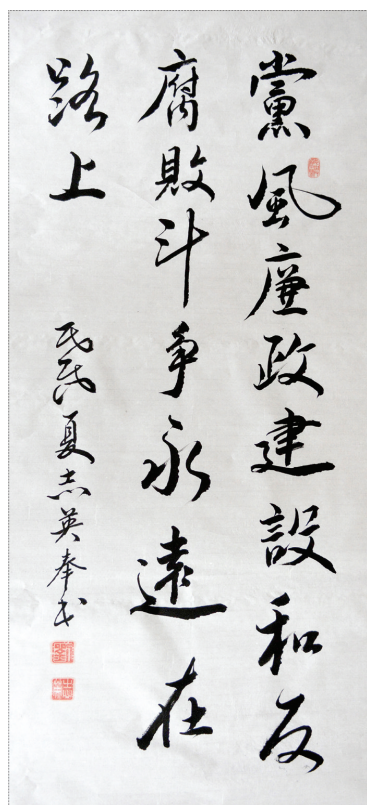 黨風廉政建設和反
腐敗斗争永遠在
路上
戊戌夏志英奉书